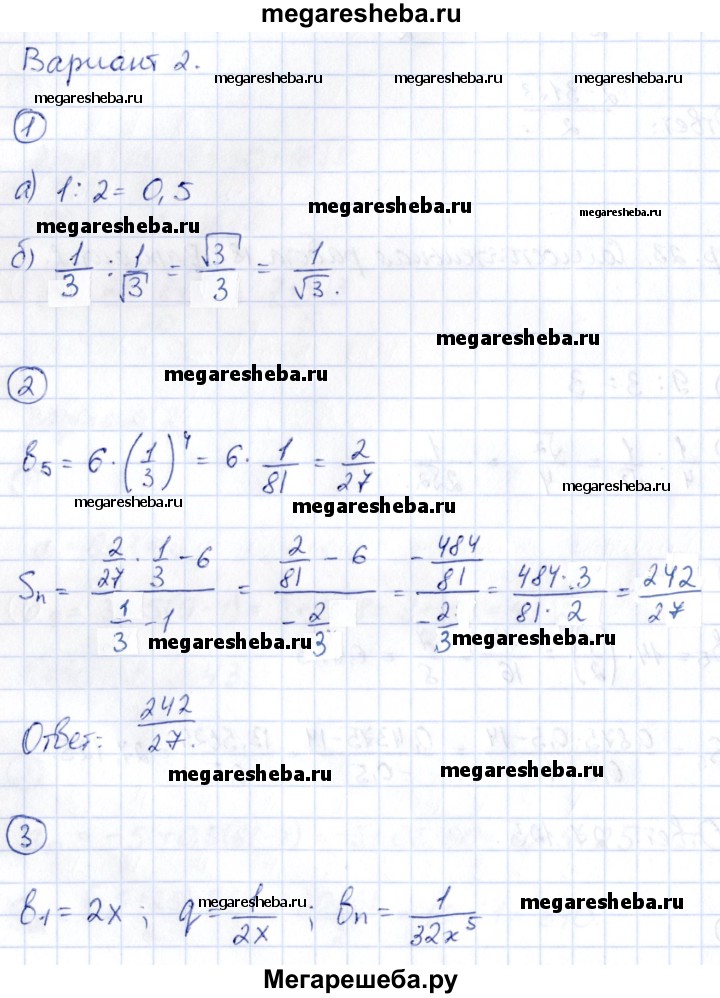 megaresheba.ru
Вариант 2.
megaresheba.ru megaresheba.ru
megaresheba.ru
1
а) 1 : 2 = 0,5
megaresheba.ru megaresheba.ru
megaresheba.ru
б) 1/3 : 1/√3 = √3/3 = 1/√3.
megaresheba.ru
megaresheba.ru
2
в5 = 6 · (1/3)^4 = 6 · 1/81 = 2/27
megaresheba.ru megaresheba.ru megaresheba.ru
Sn = (2/27 · 1/3 - 6)/(1/3 - 1) = (2/81 - 6)/(-2/3) = (-484/81)/(-2/3) = (484·3)/(81·2) = 242/27
megaresheba.ru megaresheba.ru
Ответ: 242/27.
megaresheba.ru megaresheba.ru
3
в1 = 2x ; q = 1/2x ; вn = 1/32x^5
megaresheba.ru megaresheba.ru
Мегарешеба.ру